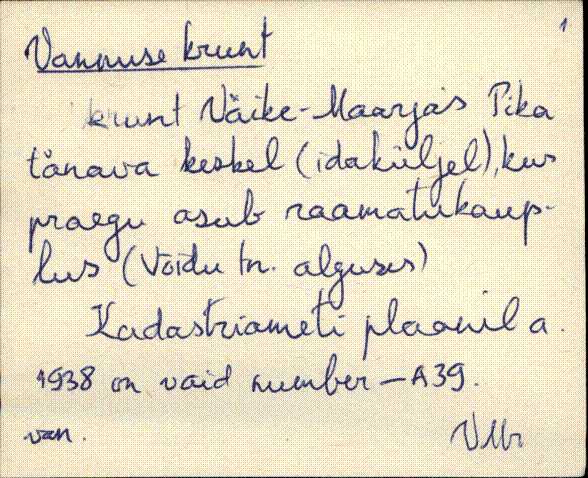 1
Vannuse krunt
krunt Väike-Maarjas Pika
tänava keskel (idaküljel), kus
praegu asub raamatukaup-
lus (Võidu tn. alguses)
Kadastriameti plaanil a.
1938 on vaid number – A39.
van.
VMr